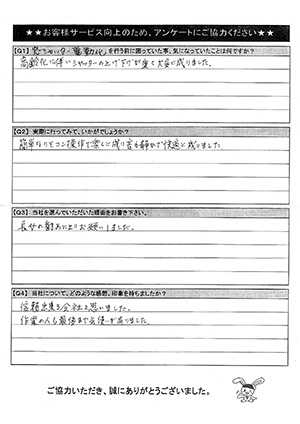 ★★お客様サービス向上のため、アンケートにご協力ください★★
【Q1】窓シャッター電動化を行う前に困っていた事、気になっていたことは何ですか?
高齢化に伴いシャッターの上げ下げが重く大変に成りました。
【Q2】実際に行ってみて、いかがでしょうか?
簡単なリモコン操作で楽しに成り音も静かで快適に成りました。
【Q3】当社を選んでいただいた理由をお書き下さい。
長女の勧めによりお願いしました。
【Q4】当社について、どのような感想、印象を持ちましたか?
信頼出来る会社と思いました。
作業の人も最後まで気使いが有りました。
ご協力いただき、誠にありがとうございました。